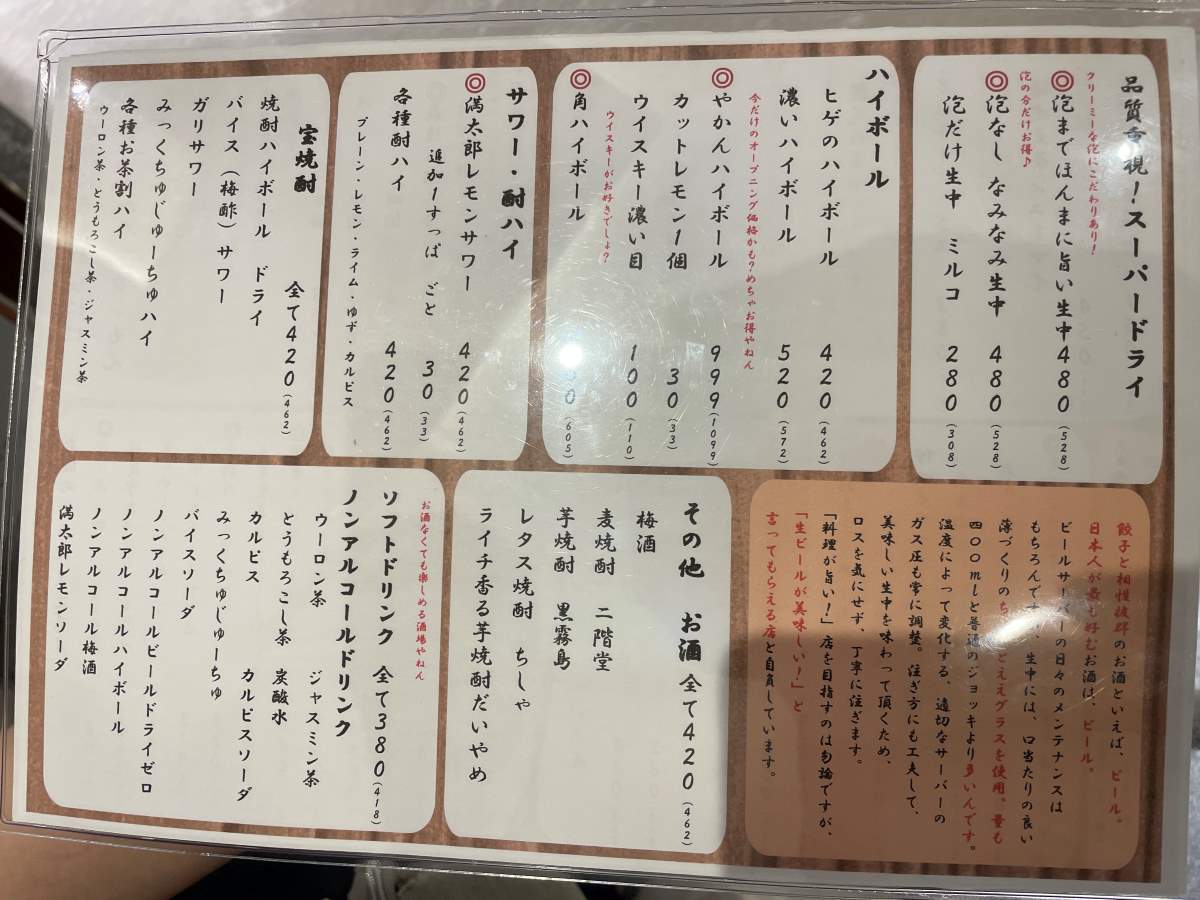 品質重視!スーパードライ
クリーミーな泡にこだわりあり!
◎泡までほんまに旨い生中480(528)
◎泡なし なみなみ生中 480(528)
泡の分だけお得♪
泡だけ生中 ミルコ 280(308)
ハイボール
ヒゲのハイボール 420(462)
濃いハイボール 520(572)
今だけのオープニング価格かも?めちゃお得やねん
◎やかんハイボール 999(1099)
カットレモン1個 30(33)
ウイスキー濃い目 100(110)
ウイスキーがお好きでしょ?
◎角ハイボール (605)
サワー・酎ハイ
◎満太郎レモンサワー 420(462)
追加1すっぱ ごと 30(33)
各種酎ハイ 420(462)
プレーン・レモン・ライム・ゆず・カルピス
宝焼酎 全て420(462)
焼酎ハイボール ドライ
バイス(梅酢)サワー
ガリサワー
みっくちゅじゅーちゅハイ
各種お茶割ハイ
ウーロン茶・とうもろこし茶・ジャスミン茶
餃子と相性抜群のお酒といえば、ビール。
日本人が最も好むお酒は、ビール。
ビールサーバーの日々のメンテナンスは
もちろんです。生中には、口当たりの良い
薄づくりのちょどええグラスを使用。量も
四〇〇mlと普通のジョッキより多いんです。
温度によって変化する、適切なサーバーの
ガス圧も常に調整。注ぎ方にも工夫して、
美味しい生中を味わって頂くため、
ロスを気にせず、丁寧に注ぎます。
「料理が旨い!」店を目指すのは勿論ですが、
「生ビールが美味しい!」と
言ってもらえる店と自負しています。
その他 お酒 全て420(462)
梅酒
麦焼酎 二階堂
芋焼酎 黒霧島
レタス焼酎 ちしゃ
ライチ香る芋焼酎だいやめ
お酒なくても楽しめる酒場やねん
ソフトドリンク 全て380(418)
ノンアルコールドリンク
ウーロン茶 ジャスミン茶
とうもろこし茶 炭酸水
カルピス カルピスソーダ
みっくちゅじゅーちゅ
バイスソーダ
ノンアルコールビールドライゼロ
ノンアルコールハイボール
ノンアルコール梅酒
満太郎レモンソーダ